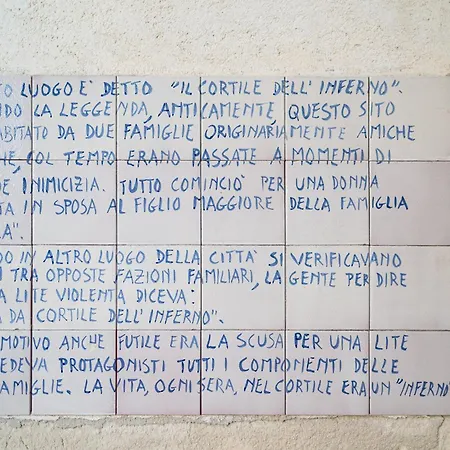 TO LUOGO E' DETTO "IL CORTILE DELL' INFERNO".
DO LA LEGGENDA, ANTICAMENTE, QUESTO SITO
ABITATO DA DUE FAMIGLIE ORIGINARIAMENTE AMICHE
HE, COL TEMPO ERANO PASSATE A MOMENTI DI
DE INIMICIZIA. TUTTO COMINCIO' PER UNA DONNA
TA IN SPOSA AL FIGLIO MAGGIORE DELLA FAMIGLIA
LA".
DO IN ALTRO LUOGO DELLA CITTA' SI VERIFICAVANO
I TRA OPPOSTE FAZIONI FAMILIARI, LA GENTE PER DIRE
A LITE VIOLENTA DICEVA:
A DA CORTILE DELL'INFERNO".
MOTIVO ANCHE FUTILE ERA LA SCUSA PER UNA LITE
EDEVA PROTAGONISTI TUTTI I COMPONENTI DELLE
FAMIGLIE. LA VITA, OGNI SERA, NEL CORTILE ERA UN "INFERNO